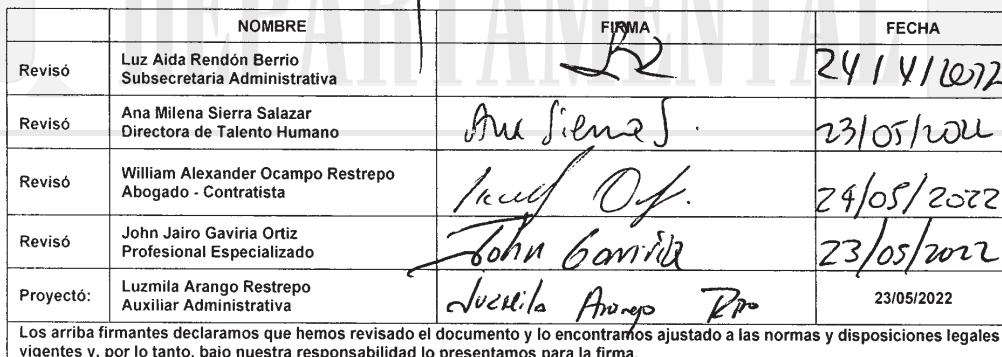 DEPARTAMENTAL
NOMBRE FIRMA FECHA
Revisó Luz Aida Rendón Berrio
Subsecretaria Administrativa
Revisó Ana Milena Sierra Salazar
Directora de Talento Humano Ana Sierra S. 23/05/2022
Revisó William Alexander Ocampo Restrepo
Abogado - Contratista 24/05/2022
Revisó John Jairo Gaviria Ortiz
Profesional Especializado John Gaviria 23/05/2022
Proyectó: Luzmila Arango Restrepo
Auxiliar Administrativa Luzmila Arango Rpo 23/05/2022
Los arriba firmantes declaramos que hemos revisado el documento y lo encontramos ajustado a las normas y disposiciones legales
vigentes y, por lo tanto, bajo nuestra responsabilidad lo presentamos para la firma.